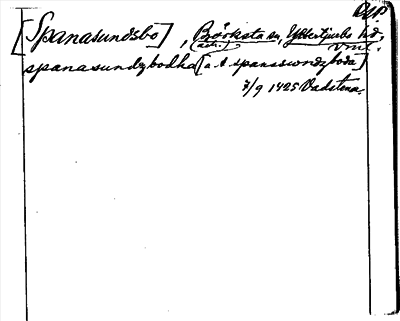 DLP
[Spanasundsbo], Björksta sn, Yttertjurbo hd,
(adr.) Vml.
spanasundzbodha [a. st spanaswndzboda]
7/9 1425 Vadstena.